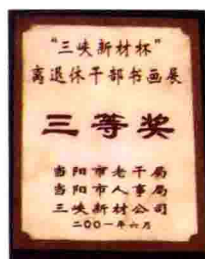 “三峡新材杯”
离退休干部书画展
三等奖
当阳市老干局
当阳市人事局
三峡新材公司
二〇〇一年六月